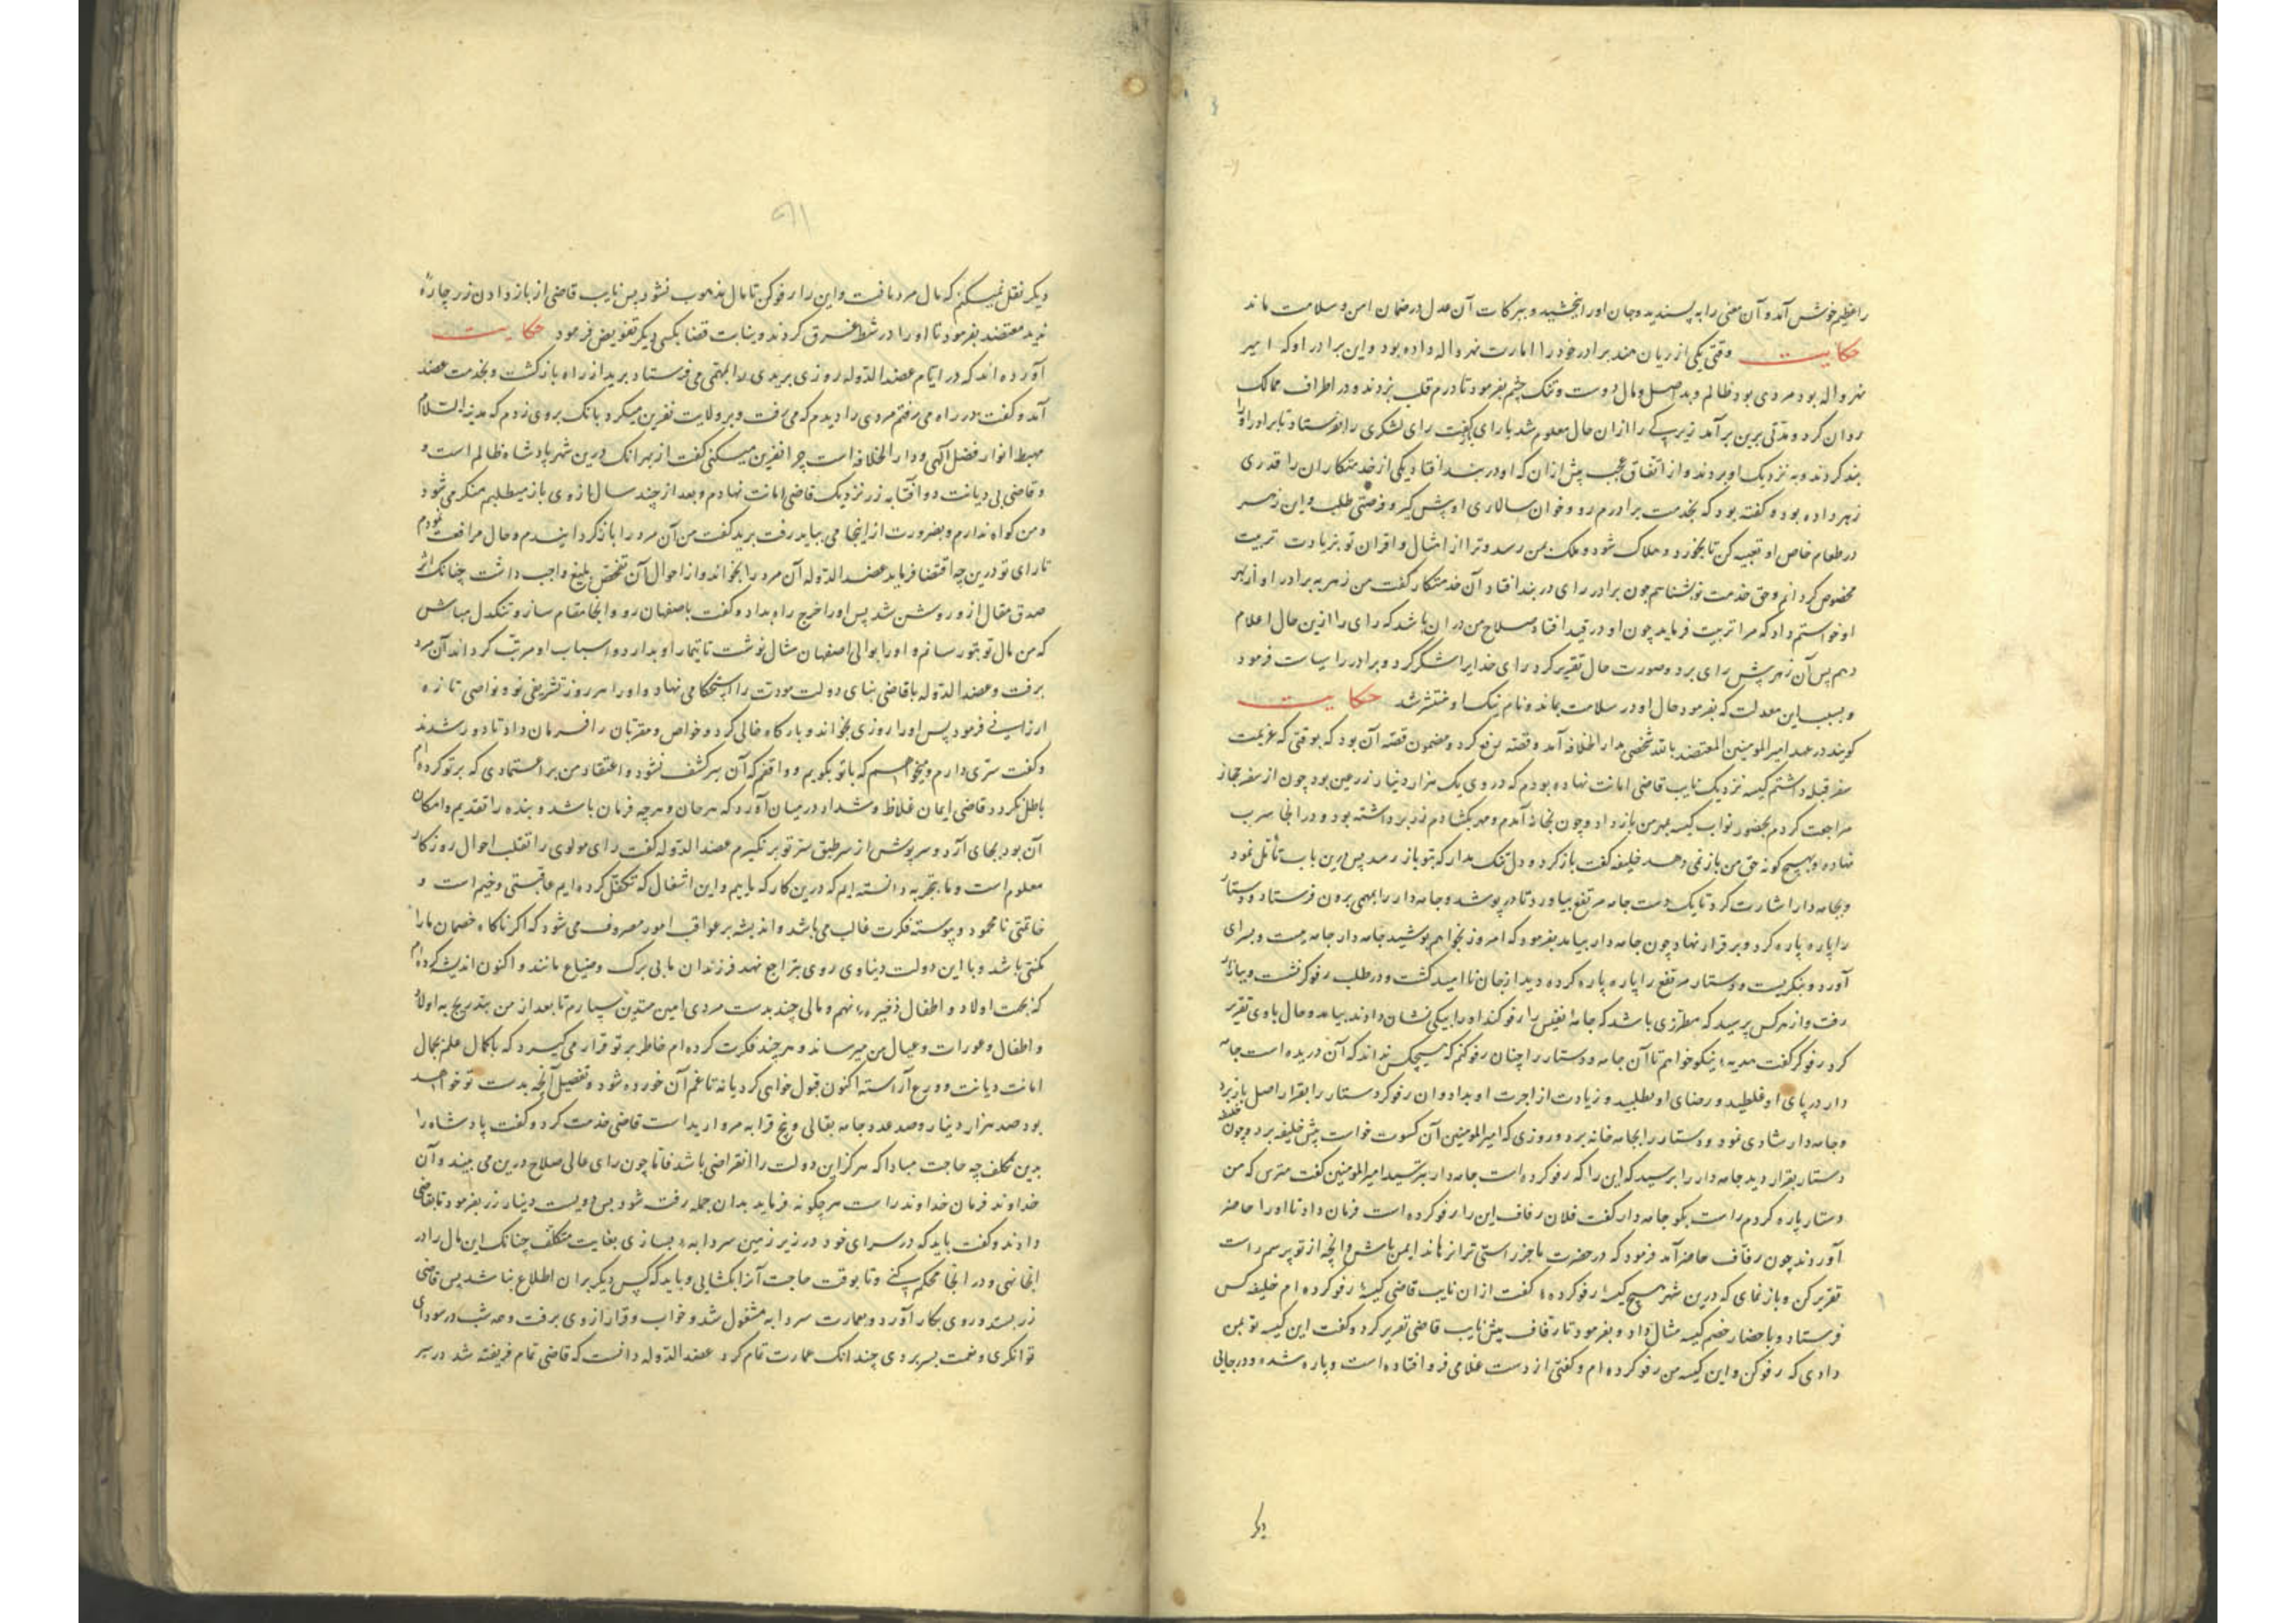 را عظیم خوش آمد و آن معنی را به پسندید و جان او را ببخشید و ببرکات آن عدل در ضمان امن و سلامت ماند
حکایت وقتی یکی از رایان هند برادر خود را امارت نهرواله داده بود و این برادر او که امیر
نهرواله بود مردی بود ظالم و بد اصل و مال دوست و تنک چشم بفرمود تا درم قلب بزدند و در اطراف ممالک
روان کرد و مدتی برین برآمد رای را ازان حال معلوم شد رای لشکری را بفرستاد تا برادر او را
بند کردند و به نزدیک او بردند و از اتفاق عجب پیش ازان که او در بند افتاد یکی از خدمتکاران را قدری
زهر داده بود و گفته بود که بخدمت برادرم رو و خوان سالاری او پیش گیر و فرصتی طلب و این زهر
در طعام خاص او تعبیه کن تا بخورد و هلاک شود و ملک بمن رسد و ترا از امثال و اقران تو بزیادت تربیت
مخصوص گردانم و حق خدمت تو بشناسم چون برادر رای در بند افتاد آن خدمتکار گفت من زهر به برادر او از بهر
او خواستم داد که مرا تربیت فرماید چون او در قید افتاد صلاح من دران باشد که رای را ازین حال اعلام
دهم پس آن زهر پیش رای برد و صورت حال تقریر کرد رای خدایرا شکر کرد و برادر را سیاست فرمود
و بسبب این معدلت که بفرمود حال او در سلامت بماند و نام نیک او منتشر شد حکایت
گویند در عهد امیر المومنین المعتضد بالله شخصی بدار الخلافه آمد و قصه رفع کرد و مضمون قصه آن بود که بوقتی که عزیمت
سفر قبله داشتم کیسه نزدیک نایب قاضی امانت نهاده بودم که در وی یک هزار دینار زر عین بود چون از سفر حجاز
مراجعت کردم بحضور نواب کیسه بمهر من باز داد و چون بخانه آمدم و مهر بکشادم زر برداشته بود و در انجا سرب
نهاده و بهیچ گونه حق من باز نمی دهد خلیفه گفت باز گرد و دل تنک مدار که بتو باز رسد پس درین باب تأمل نمود
و بجامه دار اشارت کرد تا یک دست جامه مرتفع بیاورد تا در پوشد و جامه دار را بمهمی برون فرستاد و دستار
را پاره پاره کرد و بر قرار نهاد چون جامه دار بیامد بفرمود که امروز نخواهم پوشید جامه دار جامه بست و بسرای
آورد و بنگریست و دستار مرتفع را پاره پاره کرده دید از جان ناامید گشت و در طلب رفوگر نشست و ببازار
رفت و از هر کس پرسید که مطرزی باشد که جامه نفیس را رفو کند او را بیکی نشان دادند بیامد و حال با وی تقریر
کرد رفوگر گفت هدیه نیکو خواهم تا آن جامه و دستار را چنان رفو کنم که هیچکس نداند که آن دریده است جامه
دار در پای او غلطید و رضای او طلبید و زیادت از اجرت او بداد و ان رفوگر دستار را بقرار اصل باز برد
و جامه دار شادی نمود و دستار را بجامه خانه برد و روزی که امیر المومنین آن کسوت خواست پیش خلیفه برد و چون خلیفه
دستار بقرار دید جامه دار را پرسید که این را که رفو کرده است جامه دار بترسید امیر المومنین گفت مترس که من
دستار پاره کردم راست بگو جامه دار گفت فلان رفاف این را رفو کرده است فرمان داد تا او را حاضر
آوردند چون رفاف حاضر آمد فرمود که در حضرت ما جز راستی ترا نرهاند ایمن باش و آنچه از تو پرسم راست
تقریر کن و باز نمای که درین شهر هیچ کیسه رفو کرده گفت ازان نایب قاضی کیسه رفو کرده ام خلیفه کس
فرستاد و باحضار خصم کیسه مثال داد و بفرمود تا رفاف پیش نایب قاضی تقریر کرد و گفت این کیسه تو بمن
دادی که رفو کن و این کیسه من رفو کرده ام و گفتی از دست غلامی فرو افتاده است و پاره شده و در جایی
دیگر
دیگر نقل نمیکنم که مال مرد مافت و این را رفو کن تا مال منهوب نشود پس نایب قاضی از باز دادن زر چاره
ندید معتضد بفرمود تا او را در شط غرق کردند و نیابت قضا بکسی دیگر تفویض فرمود حکایت
آورده اند که در ایام عضد الدوله روزی بریدی را بمهمی می فرستاد برید از راه بازگشت و بخدمت عضد
آمد و گفت در راه می رفتم مردی را دیدم که می رفت و بر ولایت نفرین میکرد بانک بروی زدم که مدینه السلام
مهبط انوار فضل الهی و دار الخلافه است چرا نفرین میکنی گفت از بهر انک درین شهر پادشاه ظالم است و
و قاضی بی دیانت دو آفتابه زر نزدیک قاضی امانت نهادم و بعد از چند سال از وی باز میطلبم منکر می شود
و من گواه ندارم و بضرورت از اینجا می بباید رفت برید گفت من آن مرد را باز گردانیدم و حال مرافعت نمودم
تا رای تو درین چه اقتضا فرماید عضد الدوله آن مرد را بخواند و از احوال آن تفحص بلیغ واجب داشت چنانک اثر
صدق مقال از و روشن شد پس او را خرج راه بداد و گفت باصفهان رو و انجا مقام ساز و تنگدل مباش
که من مال تو بتو رسانم و او را بوالی اصفهان مثال نوشت تا تیمار او بدارد و اسباب او مرتب گرداند آن مرد
برفت و عضد الدوله با قاضی بنای دولت مودت را استحکامی نهاد و او را هر روز تشریفی نو و نواصی تازه
ارزانی فرمود پس او را روزی بخواند و بارگاه خالی کرد و خواص و مقربان را فرمان داد تا دور شدند
و گفت سری دارم و میخواهم که با تو بگویم و واقفم که آن سر کشف نشود و اعتقاد من بر اعتمادی که بر تو کرده ام
باطل نگردد قاضی ایمان غلاظ و شداد در میان آورد که هر حال و هر چه فرمان باشد و بنده را تقدیم و امکان
آن بود بجای آرد و سرپوش از سر طبق سر تو بر نگیرم عضد الدوله گفت رای مولوی را تقلب احوال روزگار
معلوم است و ما بتجربه دانسته ایم که درین کار که ماییم و این اشغال که تکفل کرده ایم عاقبتی وخیم است و
خاتمتی نامحمود و پیوسته فکرت غالب می باشد و اندیشه بر عواقب امور مصروف می شود که اگر ناگاه خصمان ما را
مکنتی باشد و با این دولت دنیاوی روی بتراجع نهد فرزندان ما بی برگ و ضیاع مانند و اکنون اندیشه کرده ام
که بجهت اولاد و اطفال ذخیره نهم و مالی چند بدست مردی امین متدین سپارم تا بعد از من بتدریج به اولاد
و اطفال و عورات و عیال من میرساند و هر چند فکرت کرده ام خاطر بر تو قرار می گیرد که با کمال علم بجمال
امانت دیانت و ورع آراسته اکنون قبول خواهی کرد یا نه تا غم آن خورده شود و تفصیل آنچه بدست تو خواهد
بود صد هزار دینار و صد عدد جامه بقالی و پنج قرابه مروارید است قاضی خدمت کرد و گفت پادشاه را
بدین تکلف چه حاجت مبادا که هرگز این دولت را انقراضی باشد فاما چون رای عالی صلاح درین می بیند و آن
خداوند فرمان خداوند راست هر چگونه فرماید بدان جمله رفته شود پس دویست دینار زر بفرمود تا بقاضی
دادند و گفت باید که در سرای خود در زیر زمین سردابه بسازی بغایت متکلف چنانک این مال را در
انجا نهی و در انجا محکم کنی و تا بوقت حاجت آنرا بکشایی و باید که کسی دیگر بران اطلاع نباشد پس قاضی
زر بستد و روی بکار آورد و بعمارت سردابه مشغول شد و خواب و قرار از وی برفت و همه شب در سودای
توانگری و نعمت بسر بردی چندانک عمارت تمام کرد عضد الدوله دانست که قاضی تمام فریفته شد در سر